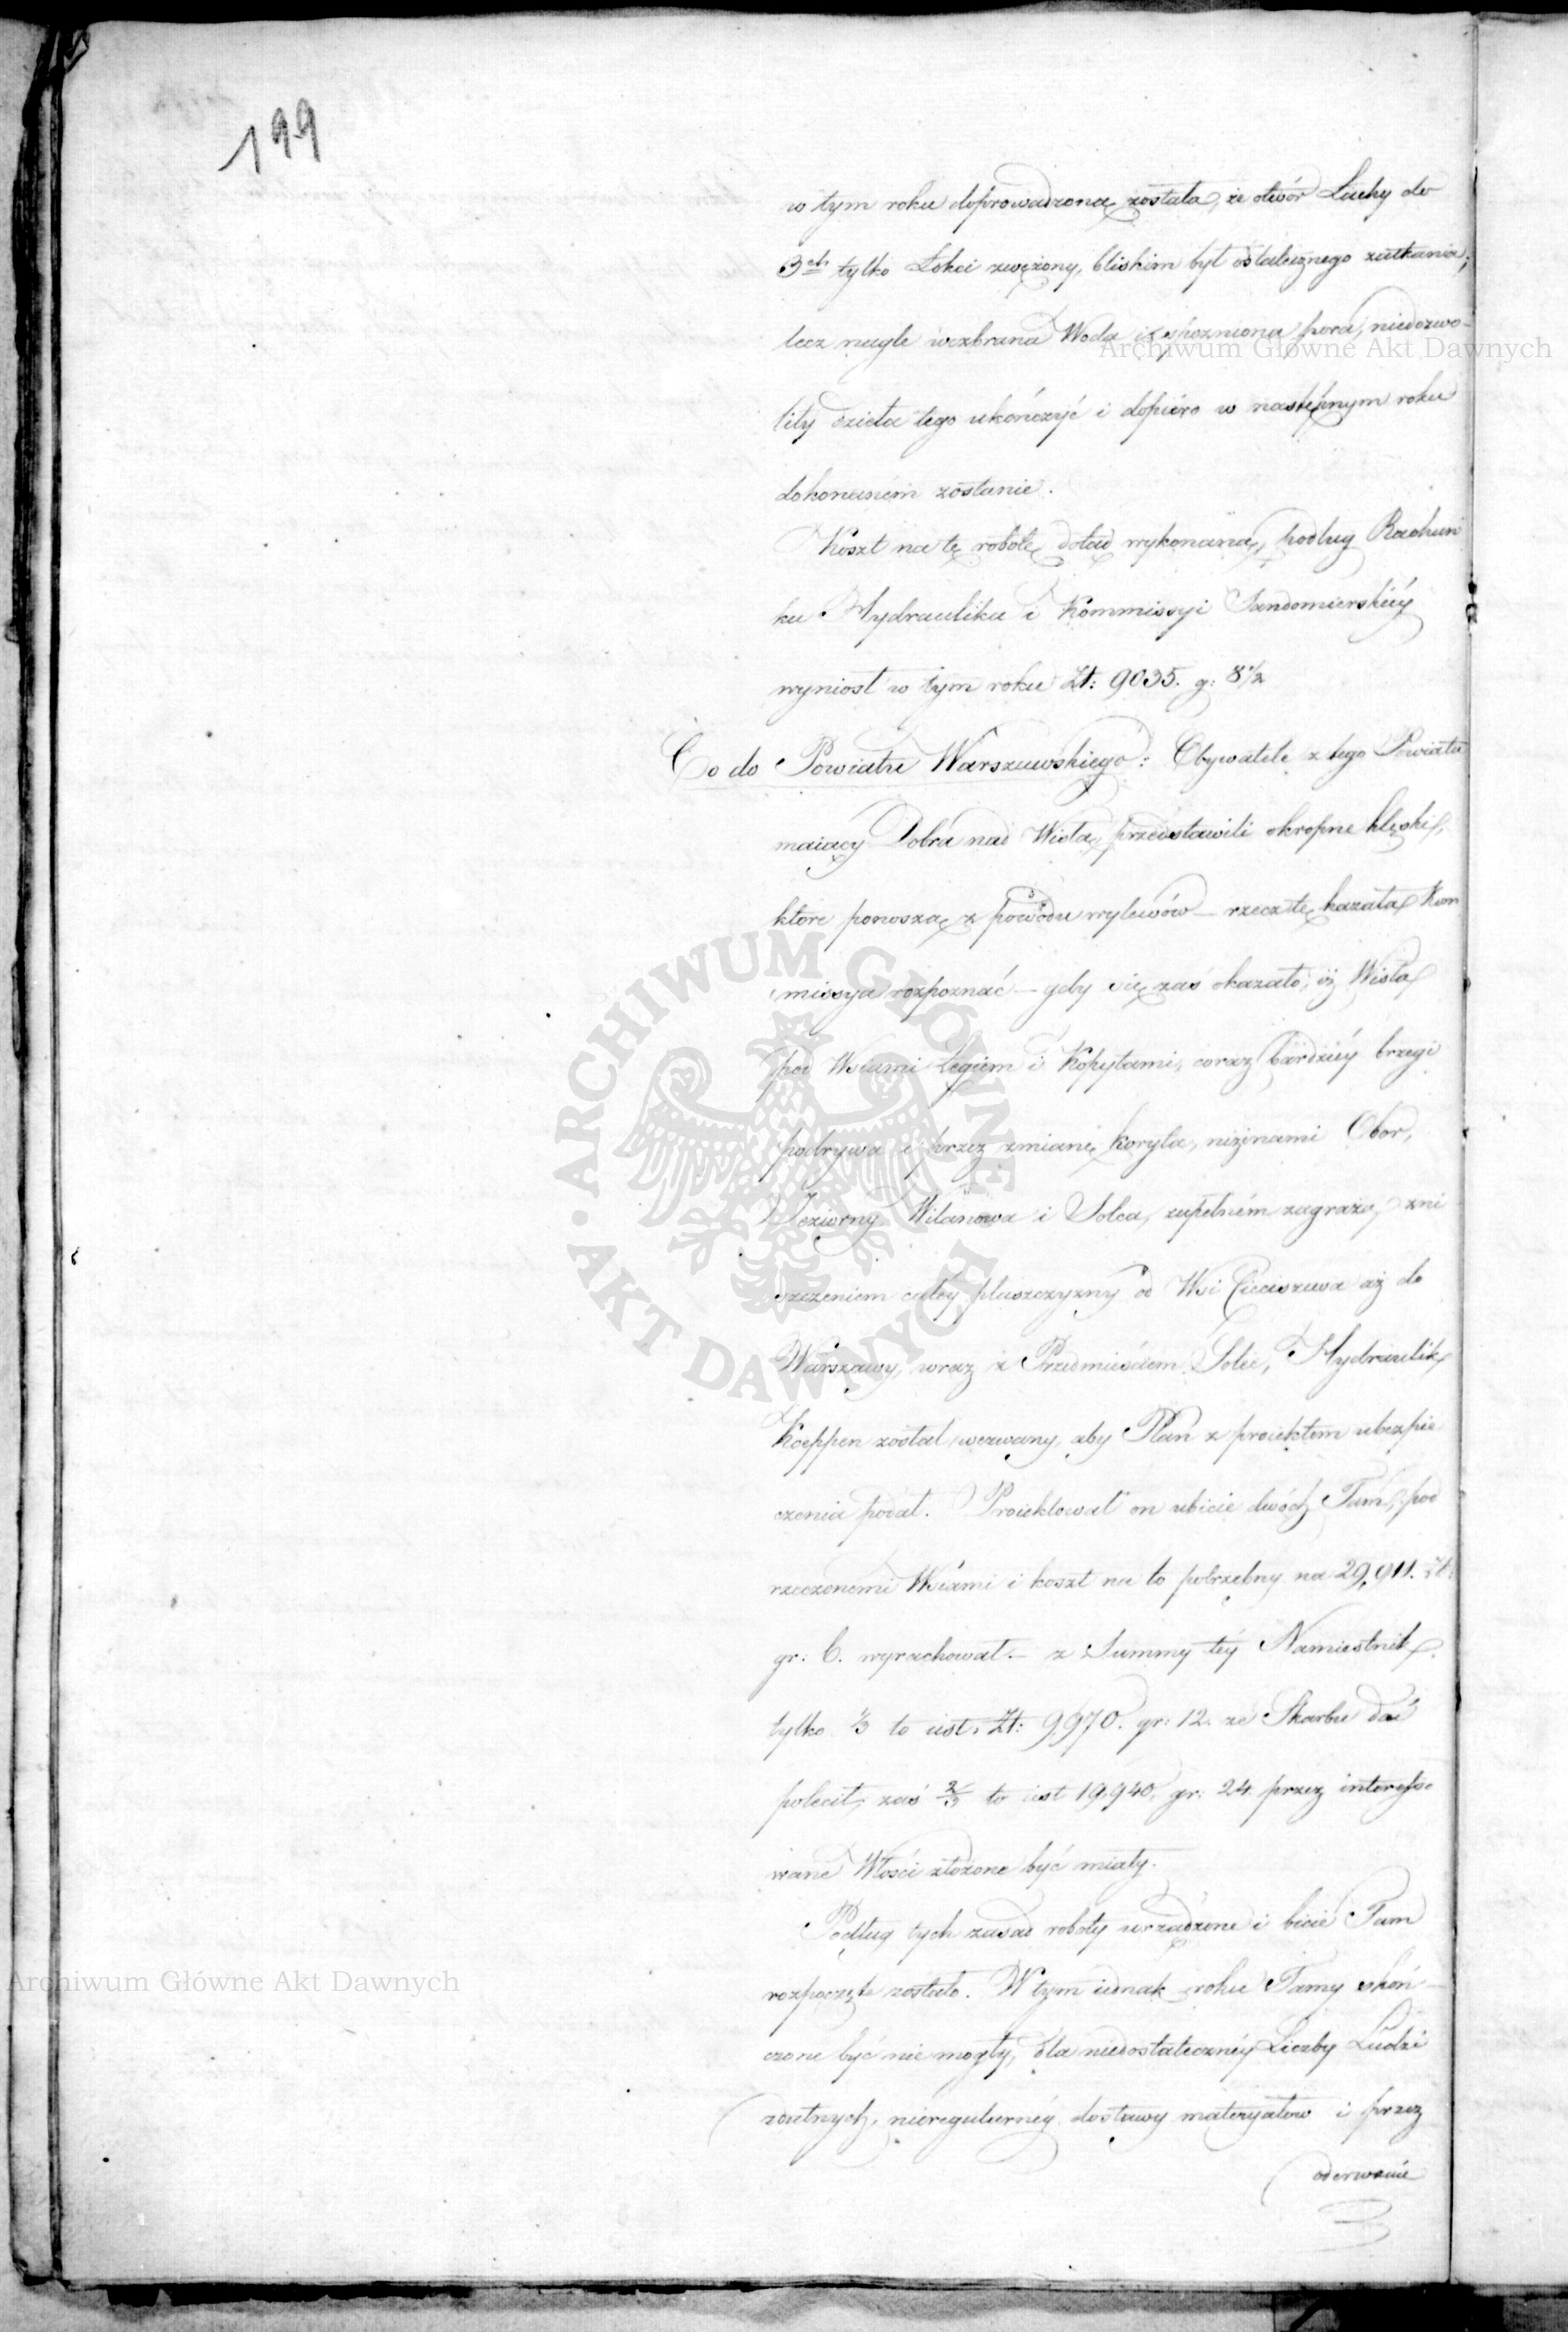 199
w tym roku doprowadzoną została, że otwór Łachy do
3ch tylko Łokci zwężony, bliskim był ostatecznego zatkania;
lecz nagle wezbrana Woda i spozniona pora, niedozwo-
liły dzieła tego ukończyć i dopiéro w następnym roku
dokonaném zostanie.
Koszt na tę robotę dotąd wykonaną, podług Rachun
ku Hydraulika i Kommissyi Sandomierskiéy
wyniosł w tym roku Zł: 9035. g: 8 1/2
Co do Powiatu Warszawskiego: Obywatele z tego Powiatu
maiący Dobra nad Wisłą, przedstawili okropne klęski,
które ponoszą z powodu wylewów – rzecz tę kazała Kom
missya rozpoznać – gdy się zaś okazało, iż Wisła
pod Wsiami Łęgiem i Kopytami, coraz bardziéy brzegi
podrywa i przez zmianę koryta, nizinami Obor,
Jeziorny, Wilanowa i Solca, zupełném zagraża zni
szczeniem całéy płaszczyzny od Wsi Cieciszewa aż do
Warszawy, wraz z Przedmieściem Solec, Hydraulik
Koeppen został wezwany, aby Plan z proiektem ubezpie
czenia podał. Proiektował on ubicie dwóch Tam, pod
rzeczonemi Wsiami i koszt na to potrzebny na 29,911. Zł:
gr: 6. wyrachował – z Summy téy Namiestnik
tylko 1/3 to iest. Zł: 9,970. gr: 12. ze Skarbu dać
polecił, zaś 2/3 to iest 19,940. gr: 24. przez interesso
wane Włości złożone być miały.
Podług tych zasad roboty urządzone i bicie Tam
rozpoczęte zostało. W tym iednak roku Tamy skoń-
czone być nie mogły, dla niedostatecznéy Liczby Ludzi
zdatnych, nieregularnéy dostawy materyałow i przez
oderwanie
Archiwum Główne Akt Dawnych
ARCHIWUM GŁÓWNE · AKT DAWNYCH ·
Archiwum Główne Akt Dawnych